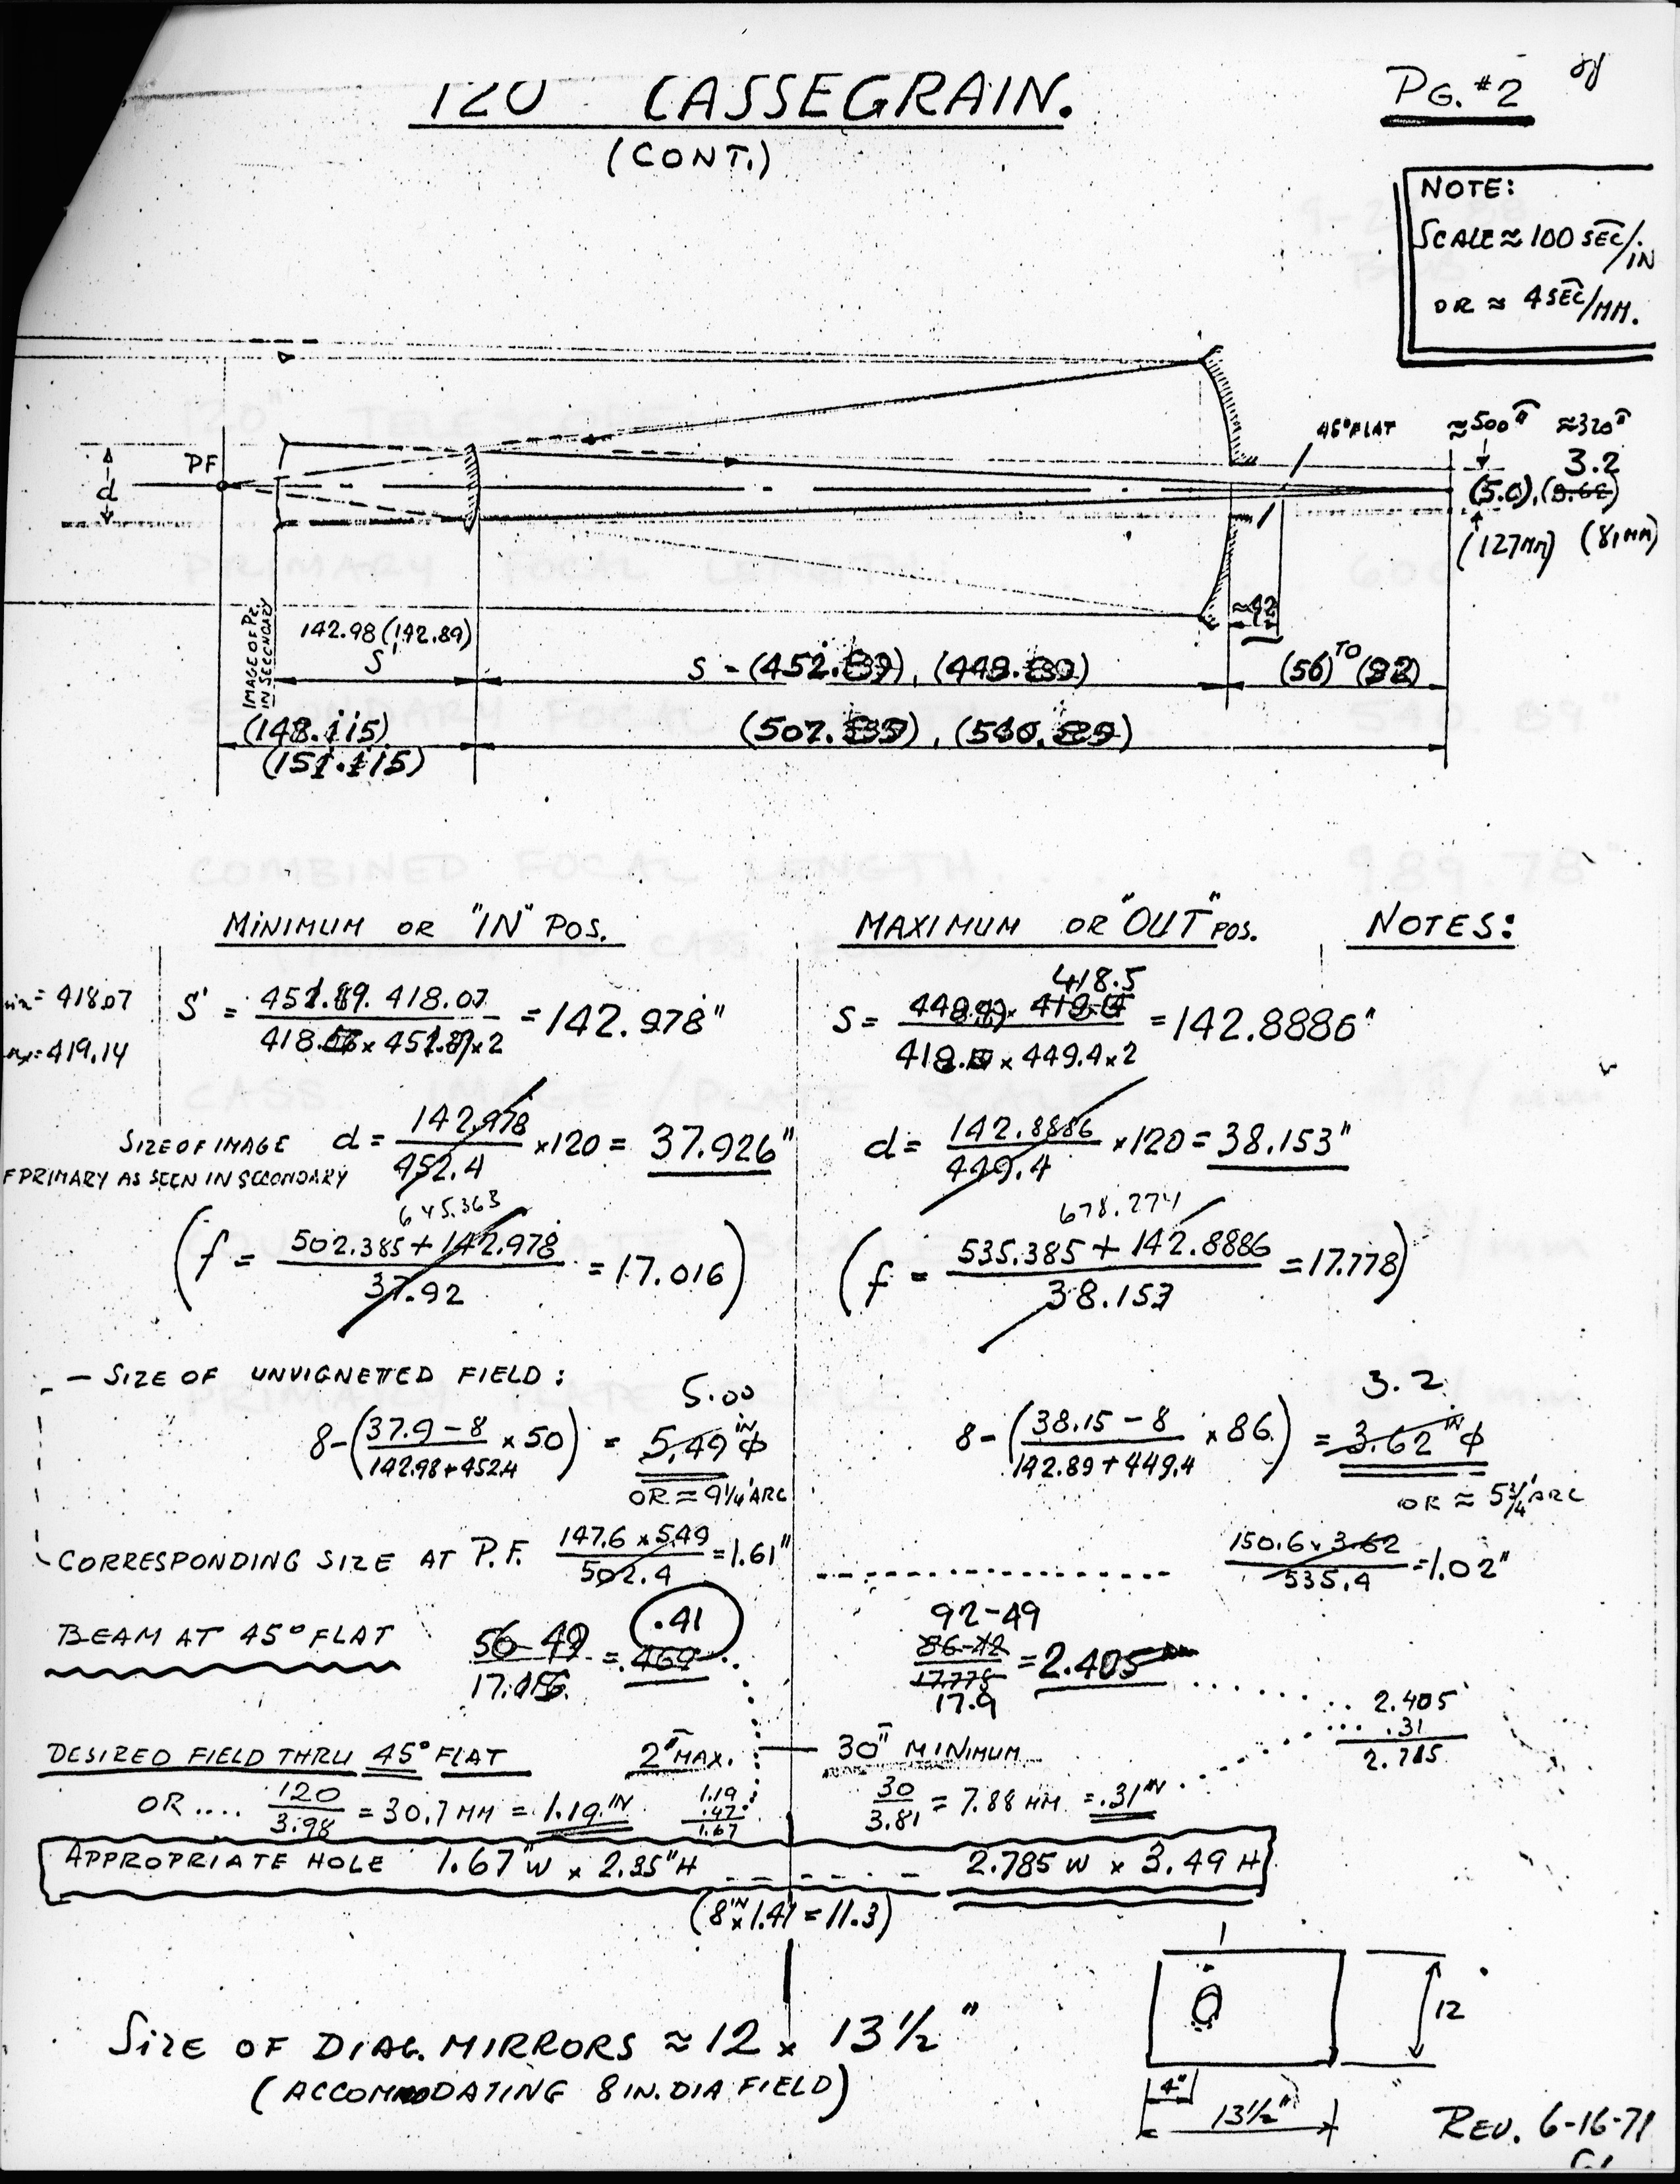 120 CASSEGRAIN.
(CONT.)
PG. #2
NOTE:
SCALE ≈ 100 SEC/IN
OR ≈ 4 SEC/MM.
45° FLAT
≈500" ≈320"
3.2
(5.0), (3.62)
(127MM) (81MM)
PF
d
IMAGE OF PR.
IN SECONDARY
142.98 (142.89)
S'
≈42
(56) TO (92)
(148.115)
(151.115)
MINIMUM OR "IN" POS.
MAXIMUM OR "OUT" POS.
NOTES:
= 418.07
= 419.14
S' = = 142.978"
418.5
S = = 142.8886"
418. × 449.4 × 2
SIZE OF IMAGE
F PRIMARY AS SEEN IN SECONDARY
d = 142.978 / 452.4 × 120 = 37.926"
d = 142.8886 / 449.4 × 120 = 38.153"
645.363
(f = 502.385 + 142.978 / 37.92 = 17.016)
678.274
(f = 535.385 + 142.8886 / 38.153 = 17.778)
- SIZE OF UNVIGNETTED FIELD:
5.00
8 - (37.9 - 8 / 142.98 + 452.4 × 50) = 5.49 IN φ
OR ≈ 9 1/4' ARC
3.2
8 - (38.15 - 8 / 142.89 + 449.4 × 86.) = 3.62 IN φ
OR ≈ 5 3/4' ARC
CORRESPONDING SIZE AT P.F. 147.6 × 5.49 / 502.4 = 1.61"
150.6 × 3.62 / 535.4 = 1.02"
BEAM AT 45° FLAT
56-49 / 17. = .469
.41
92-49
86-42 / 17.778 = 2.405
17.9
2.405
.31
2.785
DESIRED FIELD THRU 45° FLAT 2' MAX. 30" MINIMUM
OR .... 120 / 3.98 = 30.7 MM = 1.19 IN
1.19
.47
1.67
30 / 3.81 = 7.88 MM = .31 IN
APPROPRIATE HOLE 1.67"W × 2.35"H 2.785 W × 3.49 H
(8 IN × 1.41 = 11.3)
SIZE OF DIAG. MIRRORS ≈ 12 × 13 1/2"
(ACCOMMODATING 8 IN. DIA FIELD)
12
4"
13 1/2"
REV. 6-16-71